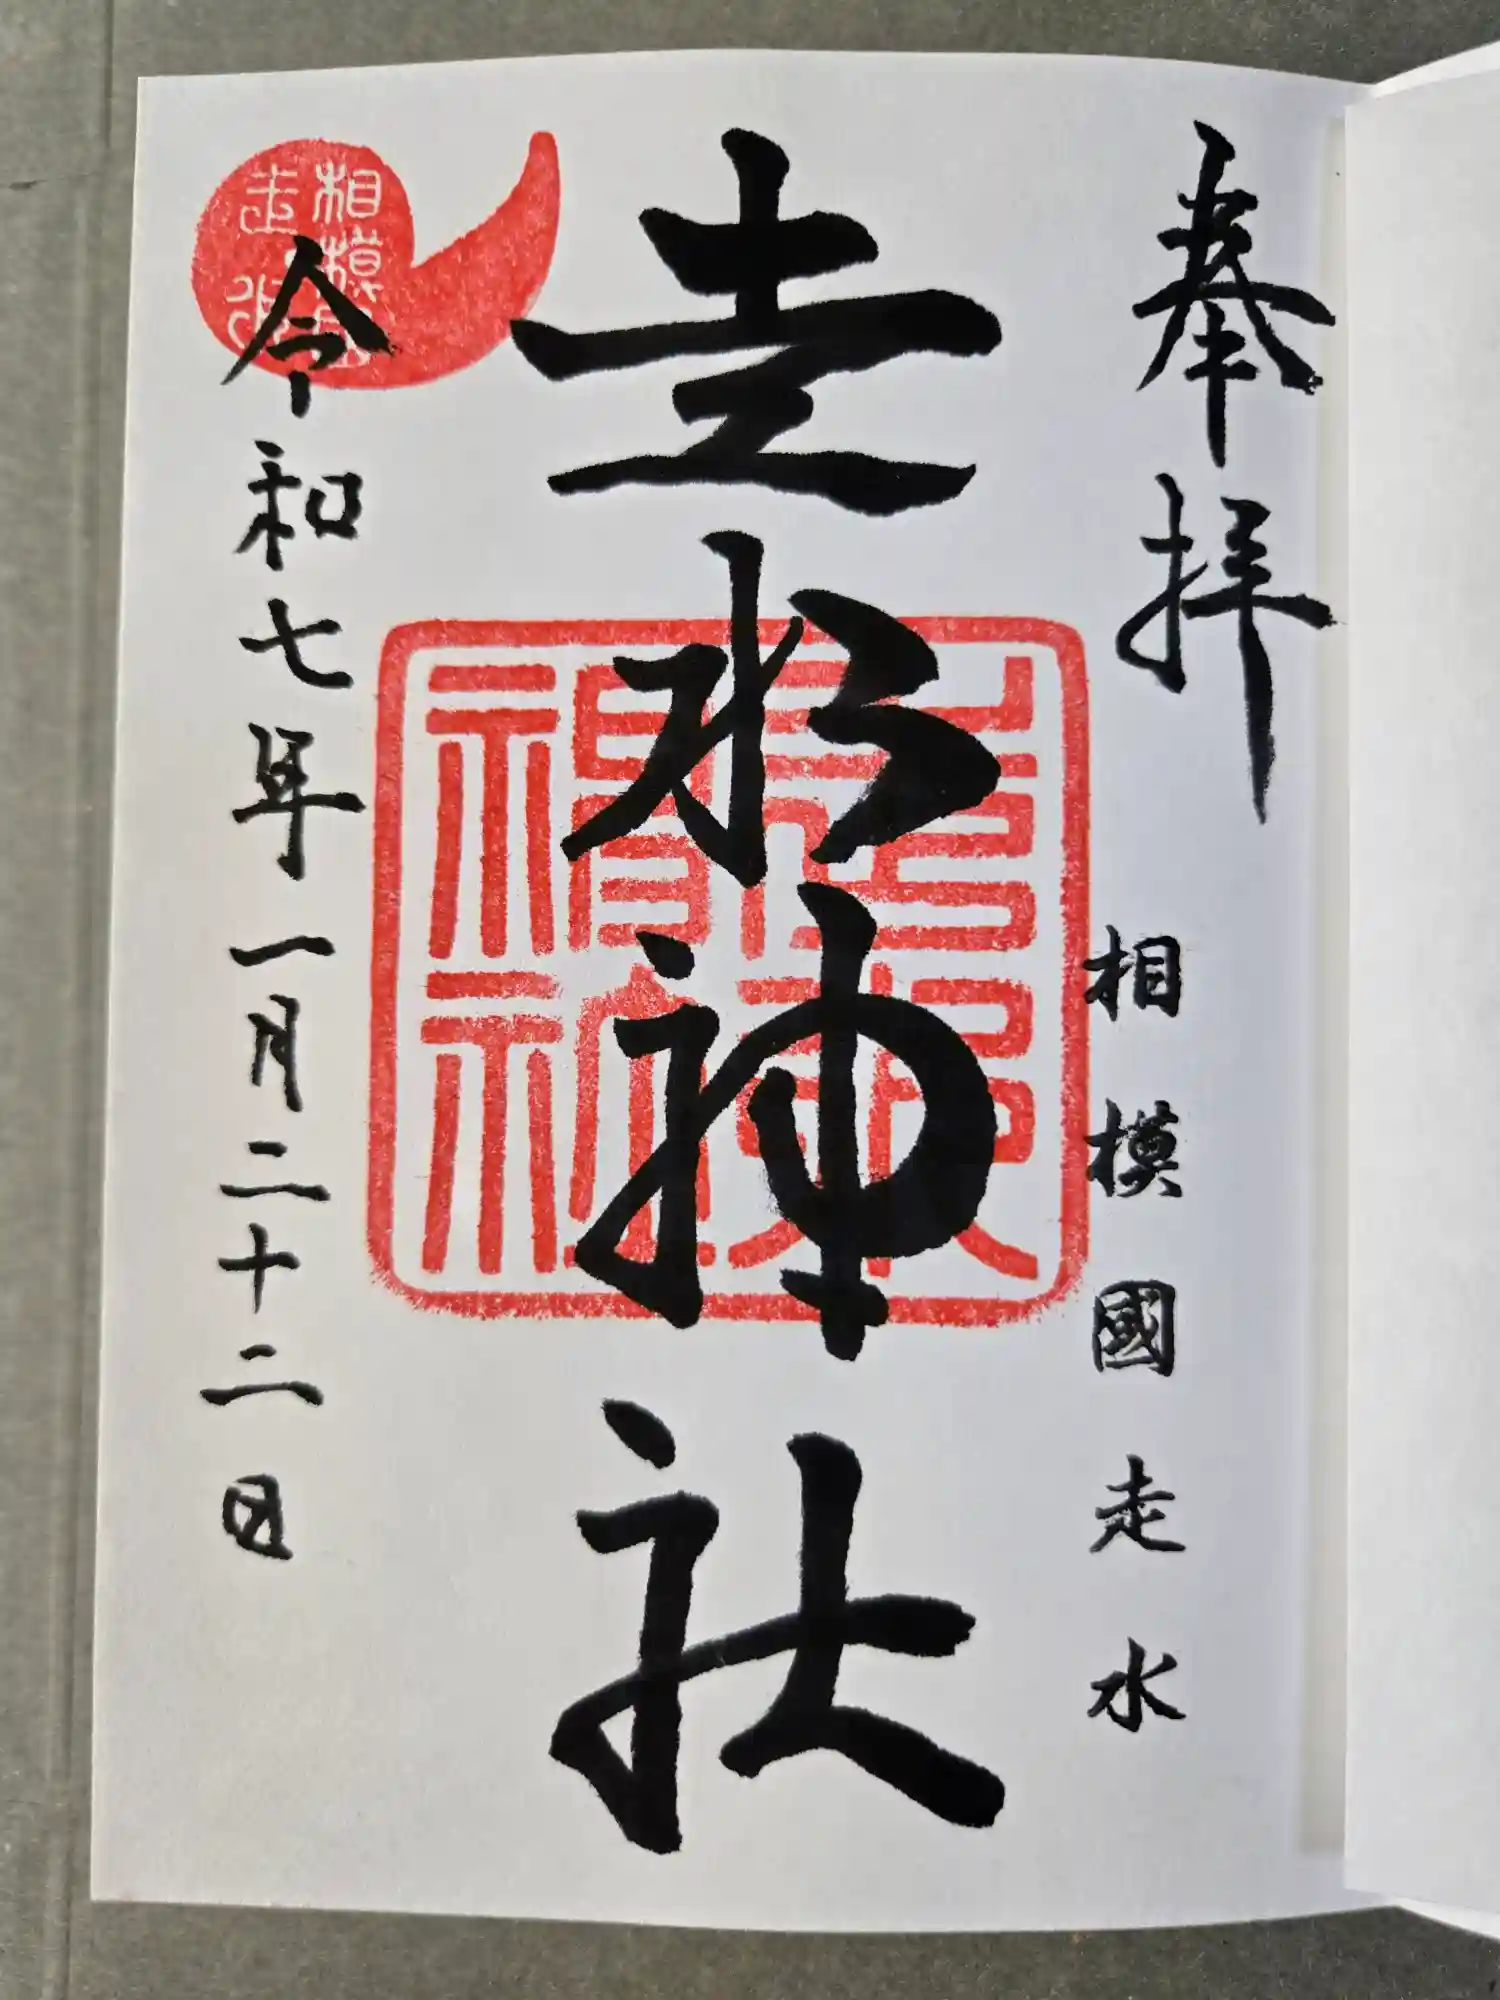 奉拝
相模國走水
走水神社
令和七年一月二十二日
相模國
走水